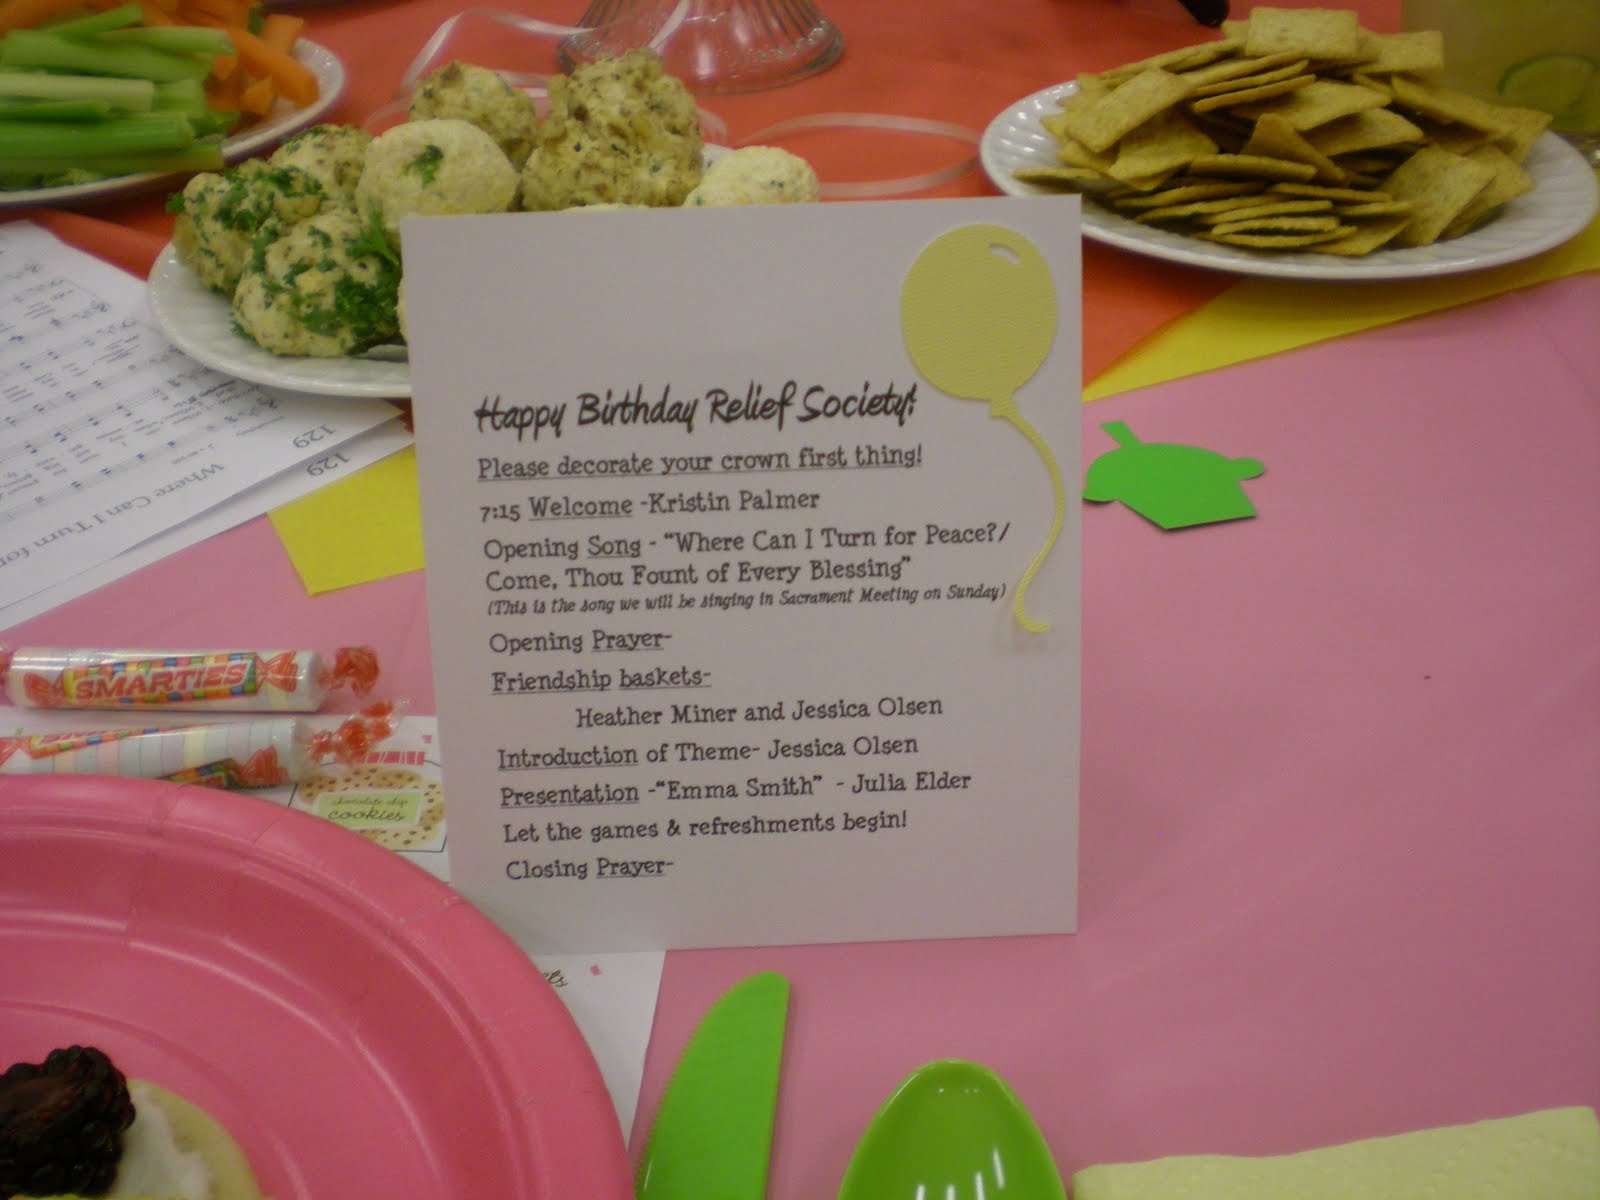 Happy Birthday Relief Society!
Please decorate your crown first thing!
7:15 Welcome -Kristin Palmer
Opening Song - “Where Can I Turn for Peace?/
Come, Thou Fount of Every Blessing”
(This is the song we will be singing in Sacrament Meeting on Sunday)
Opening Prayer-
Friendship baskets-
Heather Miner and Jessica Olsen
Introduction of Theme- Jessica Olsen
Presentation -“Emma Smith” - Julia Elder
Let the games & refreshments begin!
Closing Prayer-
129
129
Where Can I Turn for
SMARTIES
chocolate chip
cookies